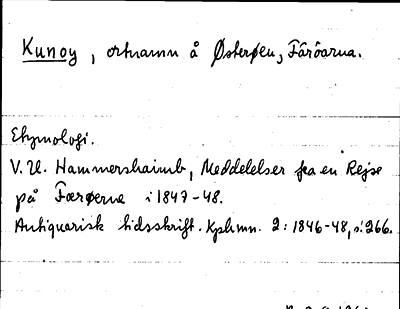 Kunoy, ortnamn å Østerøen, Färöarna.
Etymologi.
V. U. Hammershaimb, Meddelelser fra en Rejse
på Færøerne i 1847-48.
Antiquarisk tidsskrift. Kphmn. 2: 1846-48, s. 266.